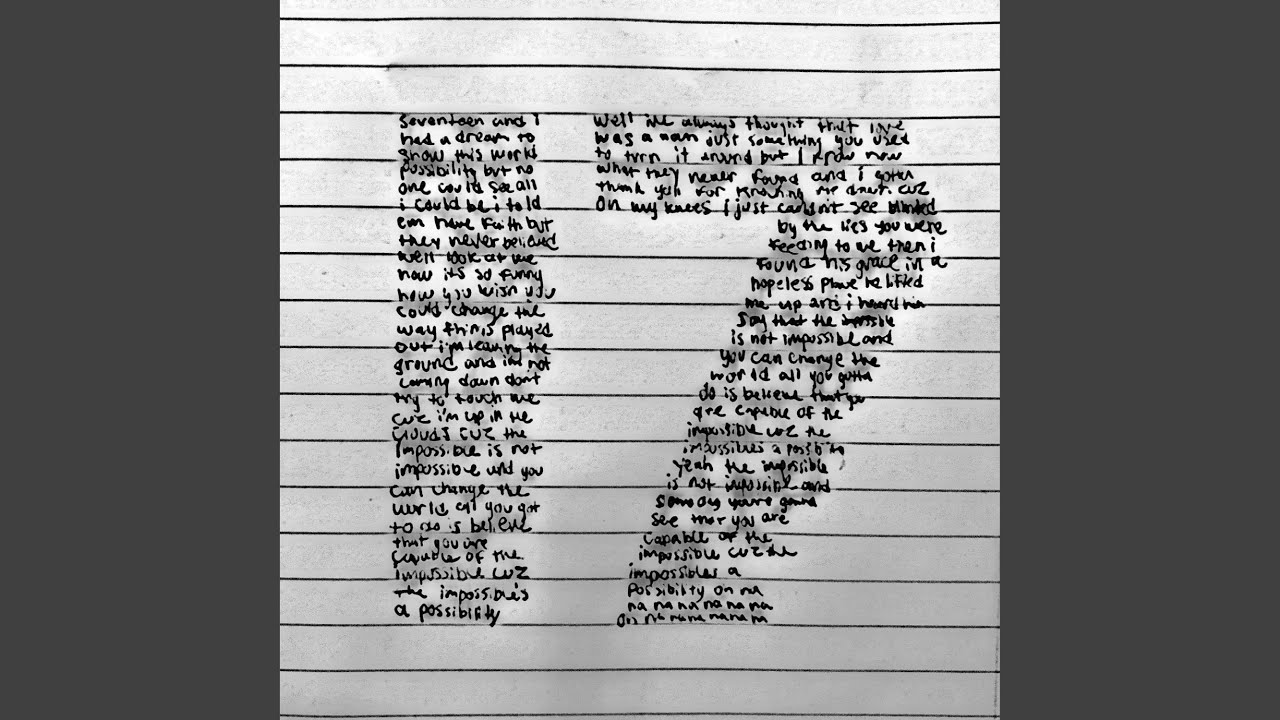 seventeen and i
had a dream to
show this world
possibility but no
one could see all
i could be i told
em have faith but
they never believed
well look at me
now it's so funny
how you wish you
could change the
way this played
out i'm leaving the
ground and i'm not
coming down don't
try to touch me
cuz i'm up in the
clouds cuz the
impossible is not
impossible and you
can change the
world all you got
to do is believe
that you are
capable of the
impossible cuz
the impossible's
a possibility
well ive always thought that love
was a man just something you used
to turn it around but i know now
what they never found and i gotta
thank yah for knowing me cuz
on my knees i just couldn't see blinded
by the lies you were
feeding to me then i
found his grace in a
hopeless place he lifted
me up and i heard him
say that the impossible
is not impossible and
you can change the
world all you gotta
do is believe that you
are capable of the
impossible cuz the
impossible's a possibility
yeah the impossible
is not impossible and
someday you're gonna
see that you are
capable of the
impossible cuz the
impossibles a
possibility oh na
na na na na na na na
oh na na na na na na